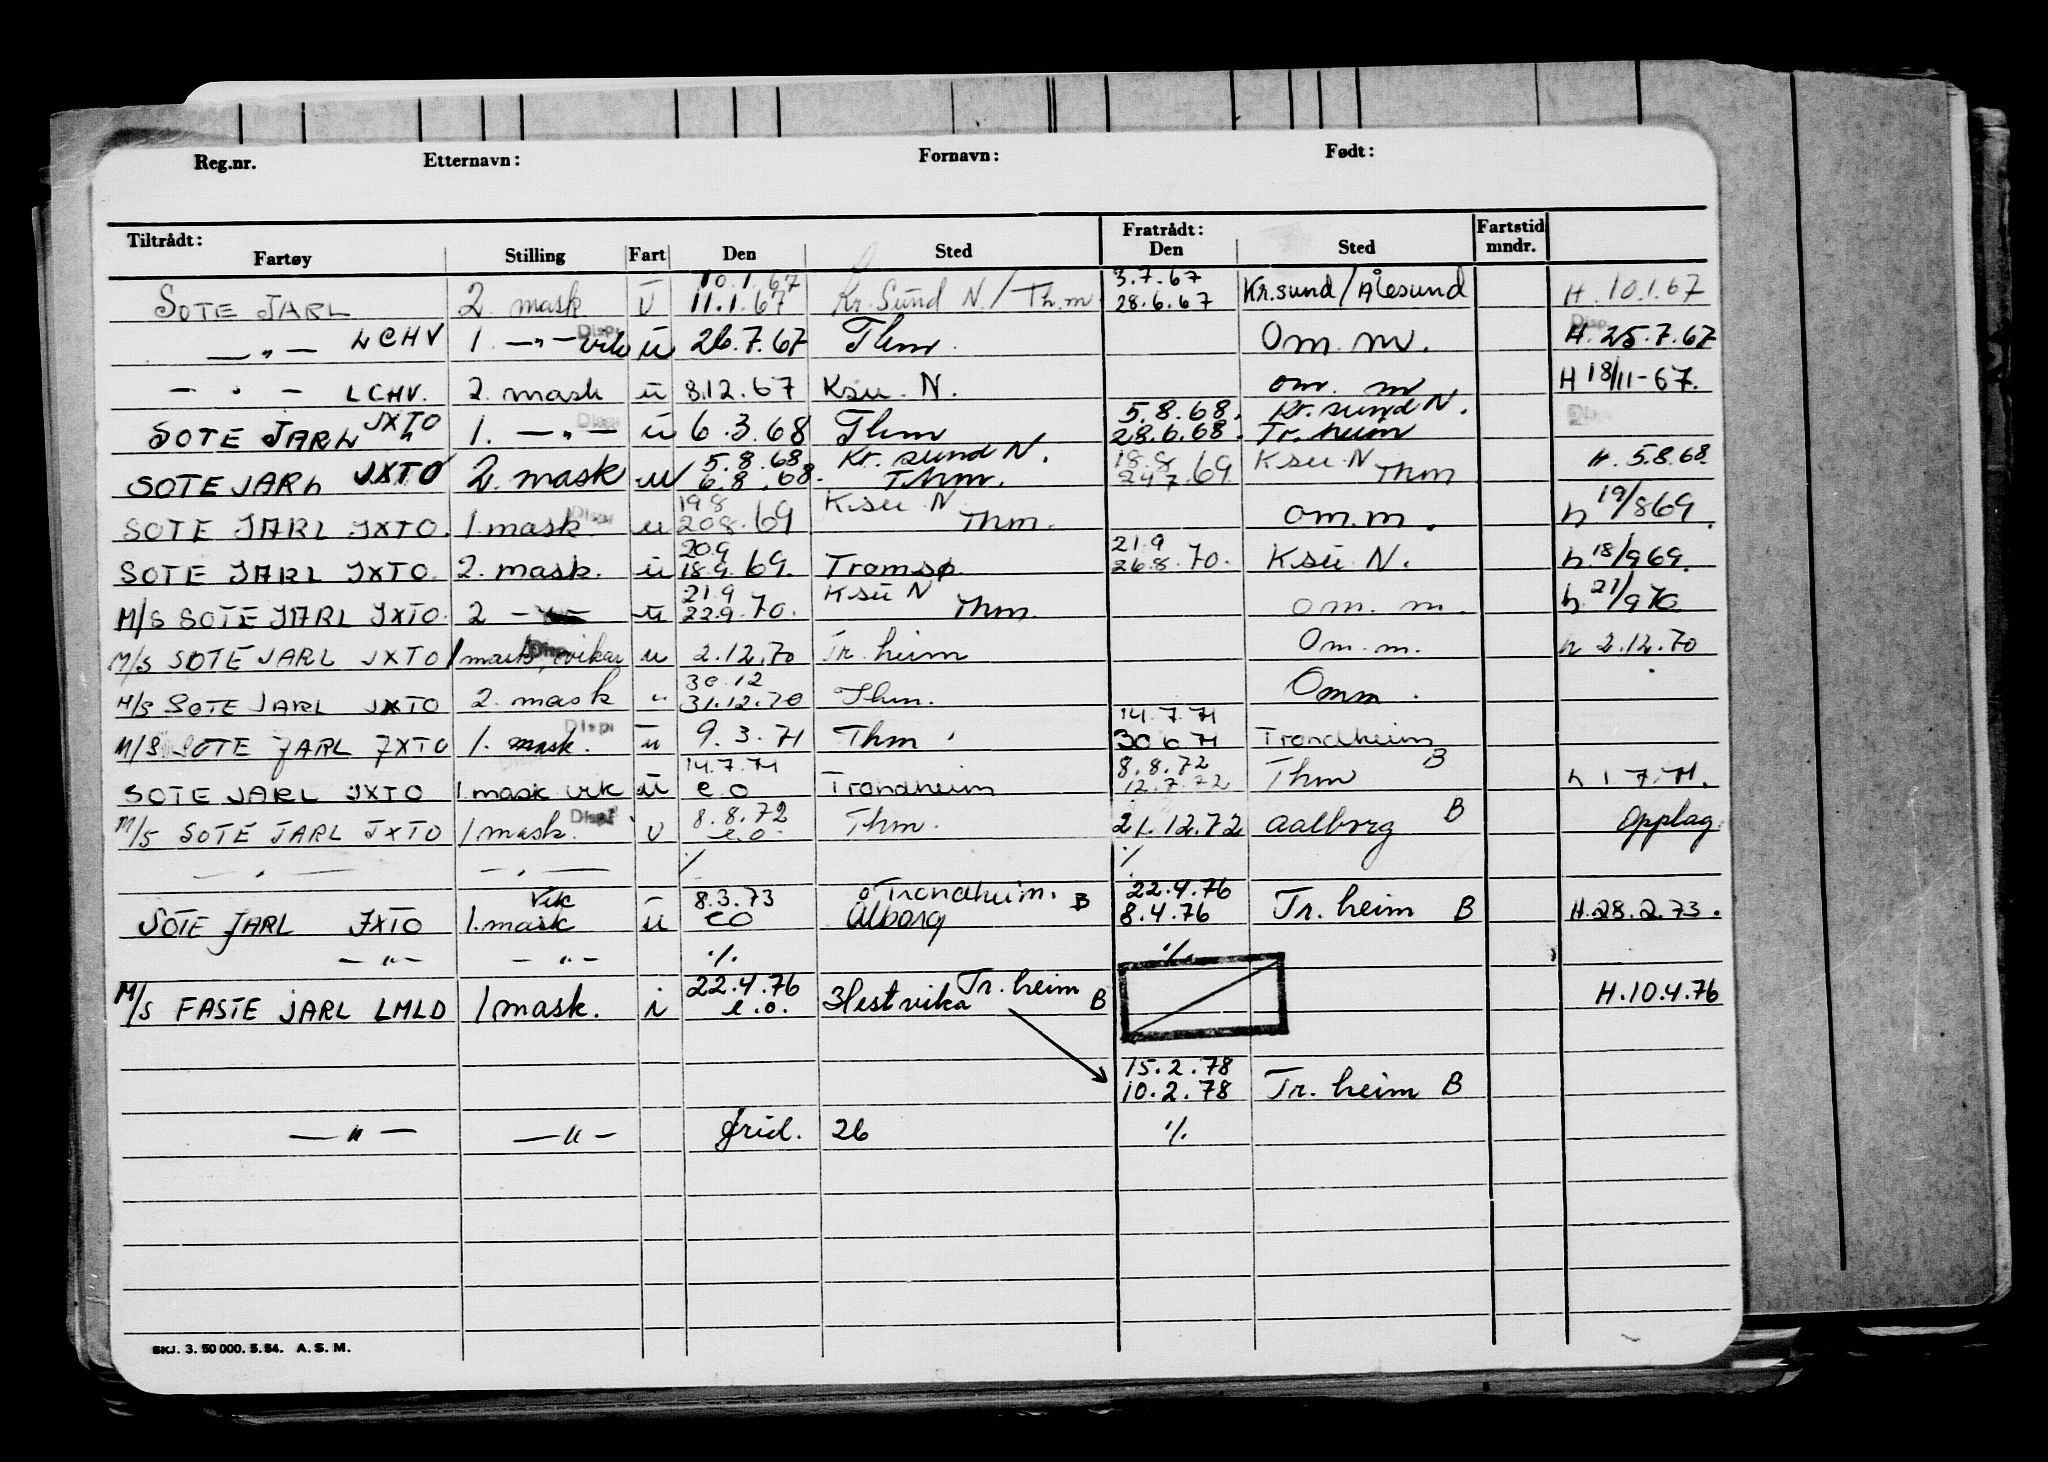 Reg.nr. Etternavn: Fornavn: Født:
Tiltrådt: Fratrådt: Fartstid
Fartøy Stilling Fart Den Sted Den Sted mndr.
10.1.67 3.7.67
SOTE JARL 2. mask U 11.1.67 Kr. Sund N / Th.m 28.6.67 Kr.sund / Ålesund H. 10.1.67
Disp. Disp.
— " — LCHV 1. — " — vik u 26.7.67 Thm. Om. m. H. 25.7.67
— " — LCHV. 2. mask u 8.12.67 Ksu. N. om. m H 18/11-67.
JXTO Disp. 5.8.68. Kr. sund N.
SOTE JARL 1. — " — u 6.3.68 Thm 28.6.68. Tr. heim
5.8.68 Kr. sund N. 18.8 Ksu N
SOTE JARL JXTO 2. mask u 6.8.68. Thm. 24.7.69. Thm H. 5.8.68.
19 8 Ksu N
SOTE JARL JXTO. 1. mask. Disp. u 20 8. 69 Thm. om. m. h 19/8 69.
20.9 21.9
SOTE JARL JXTO. 2. mask. u 18.9. 69. Tromsø. 26.8. 70. Ksu N. h. 18/9 69.
21.9 Ksu N
M/S SOTE JARL JXTO. 2 — " — u 22.9. 70. Thm. om. m. h. 21/9 70
M/S SOTE JARL JXTO 1 mask vikar u 2.12.70 Tr. heim Om. m. h 2.12.70
30.12
M/S SOTE JARL JXTO 2. mask " 31.12.70 Thm. Omm.
Disp. 14.7.71
M/S SOTE JARL JXTO 1. mask. u 9.3.71 Thm. 30.6.71 Trondheim
14.7.71 8.8.72 B
SOTE JARL JXTO 1. mask vik u e.o Trondheim 12.7.72 Thm h 1 7.71.
Disp. 8.8.72
M/S SOTE JARL JXTO 1 mask. u e.o. Thm. 21.12.72 Aalborg B Opplag
— " — — " — ./. ./.
Vik 8.3.73 Trondheim. B 22.4.76
SOTE JARL JXTO 1. mask u eo Ålborg 8.4.76 Tr. heim B H. 28.2.73.
— " — — " — ./. ./.
22.4.76 Tr. heim
M/S FASTE JARL LMLD 1 mask. i e.o. Hestvika B H. 10.4.76
15.2.78
10.2.78 Tr. heim B
— " — — " — frid. 26 ./.
SKJ. 3. 50 000. 5. 54. A. S. M.